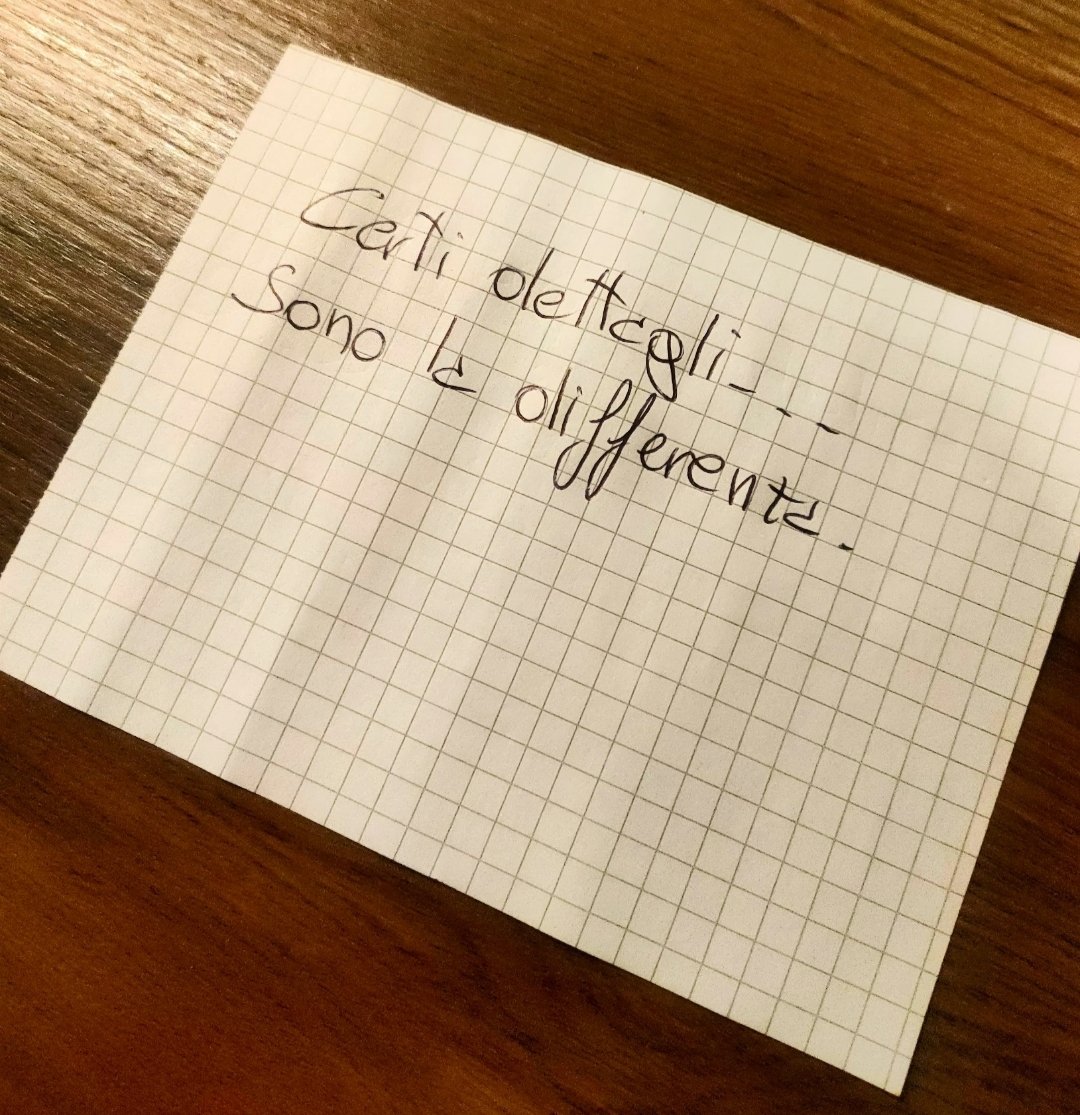 Certi dettagli...
Sono la differenta.